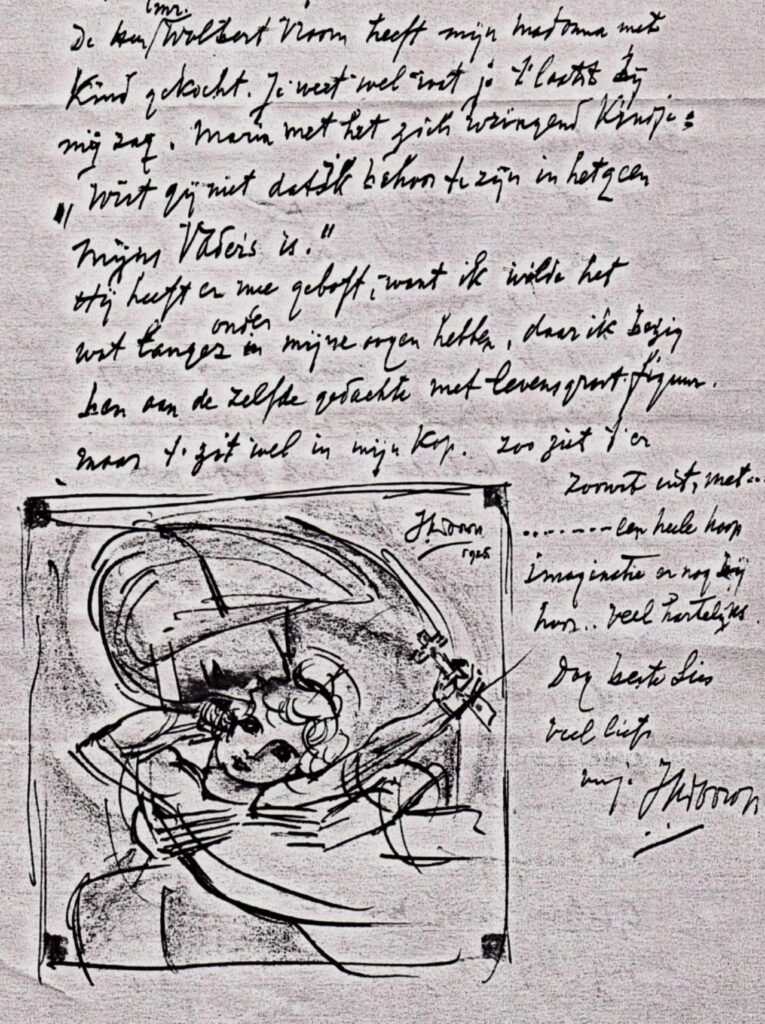 mr.
De heer Wolbert Vroom heeft mijn madonna met
Kind gekocht. Je weet wel wat je 't laatst bij
mij zag. Maria met het zich wringend Kindje:
„Wist gij niet dat Ik behoor te zijn in hetgeen
mijns Vaders is."
Hij heeft er mee geboft, want ik wilde het
wat langer onder mijne oogen hebben, daar ik bezig
ben aan de zelfde gedachte met levensgroot figuur.
maar 't zit wel in mijn Kop. zoo ziet 't er
zoowat uit, met...
........ een heele hoop
imaginatie er nog bij
hoor.. veel hartelijks.
Dag beste Lies
veel liefs